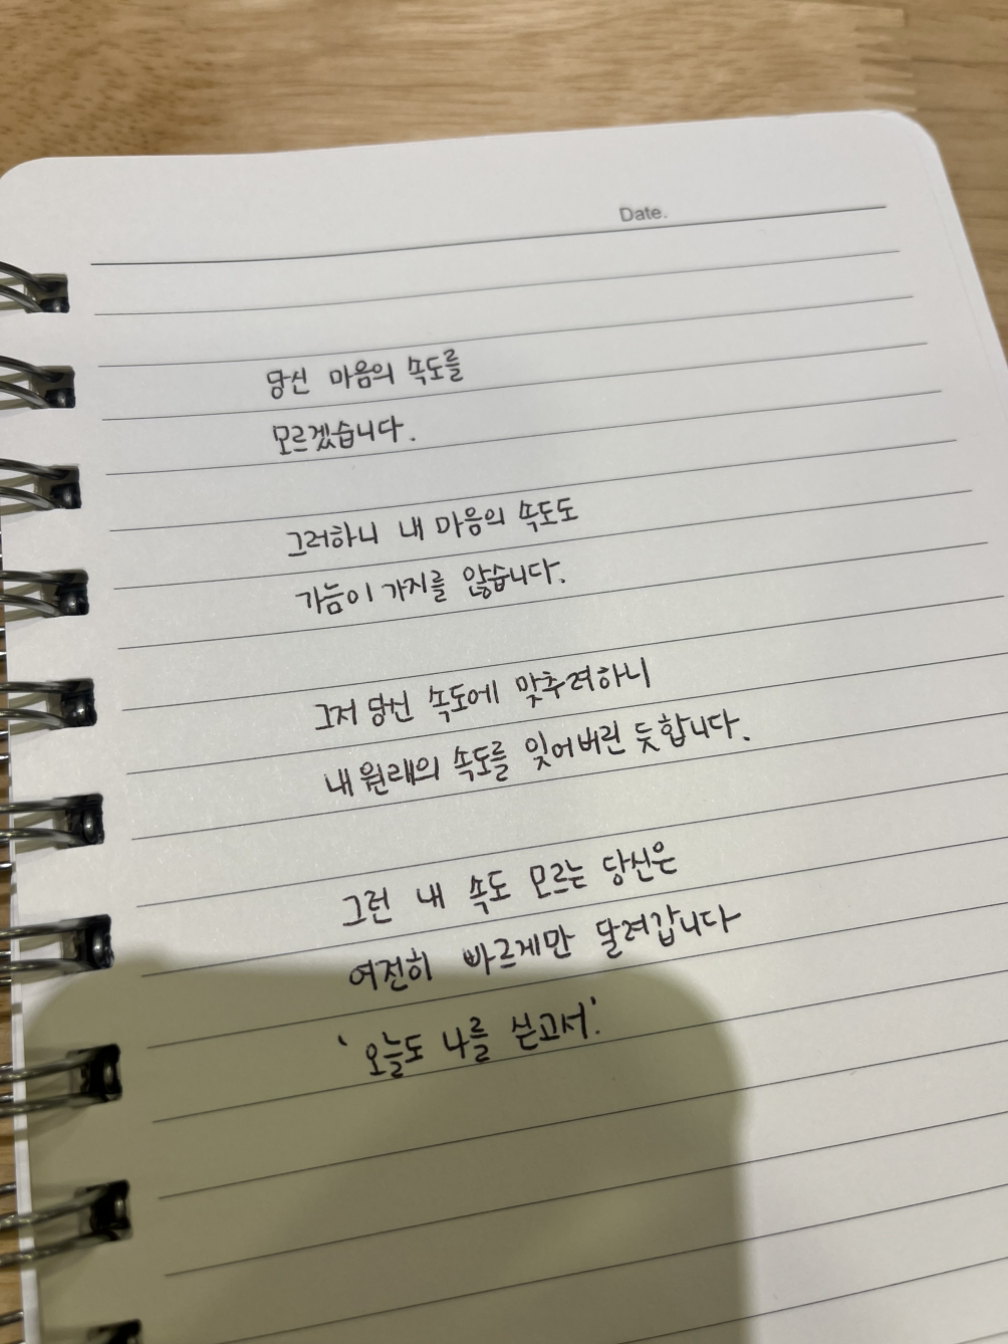 Date.
당신 마음의 속도를
모르겠습니다.
그러하니 내 마음의 속도도
가늠이 가지를 않습니다.
그저 당신 속도에 맞추려하니
내 원래의 속도를 잊어버린 듯합니다.
그런 내 속도 모르는 당신은
여전히 빠르게만 달려갑니다
'오늘도 나를 싣고서.'